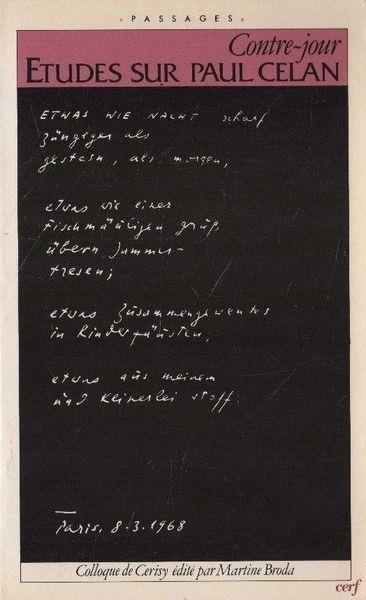 • PASSAGES •
Contre-jour
ETUDES SUR PAUL CELAN
ETWAS WIE NACHT, scharf
züngiger als
gestern, als morgen,
etwas wie einer
Fischmäuligen Gruß
übern Jammer-
tresen;
etwas Zusammengewehtes
in Kinderfäusten,
etwas aus meinem
und keinerlei Stoff.
Paris, 8.3.1968
Colloque de Cerisy édité par Martine Broda
cerf